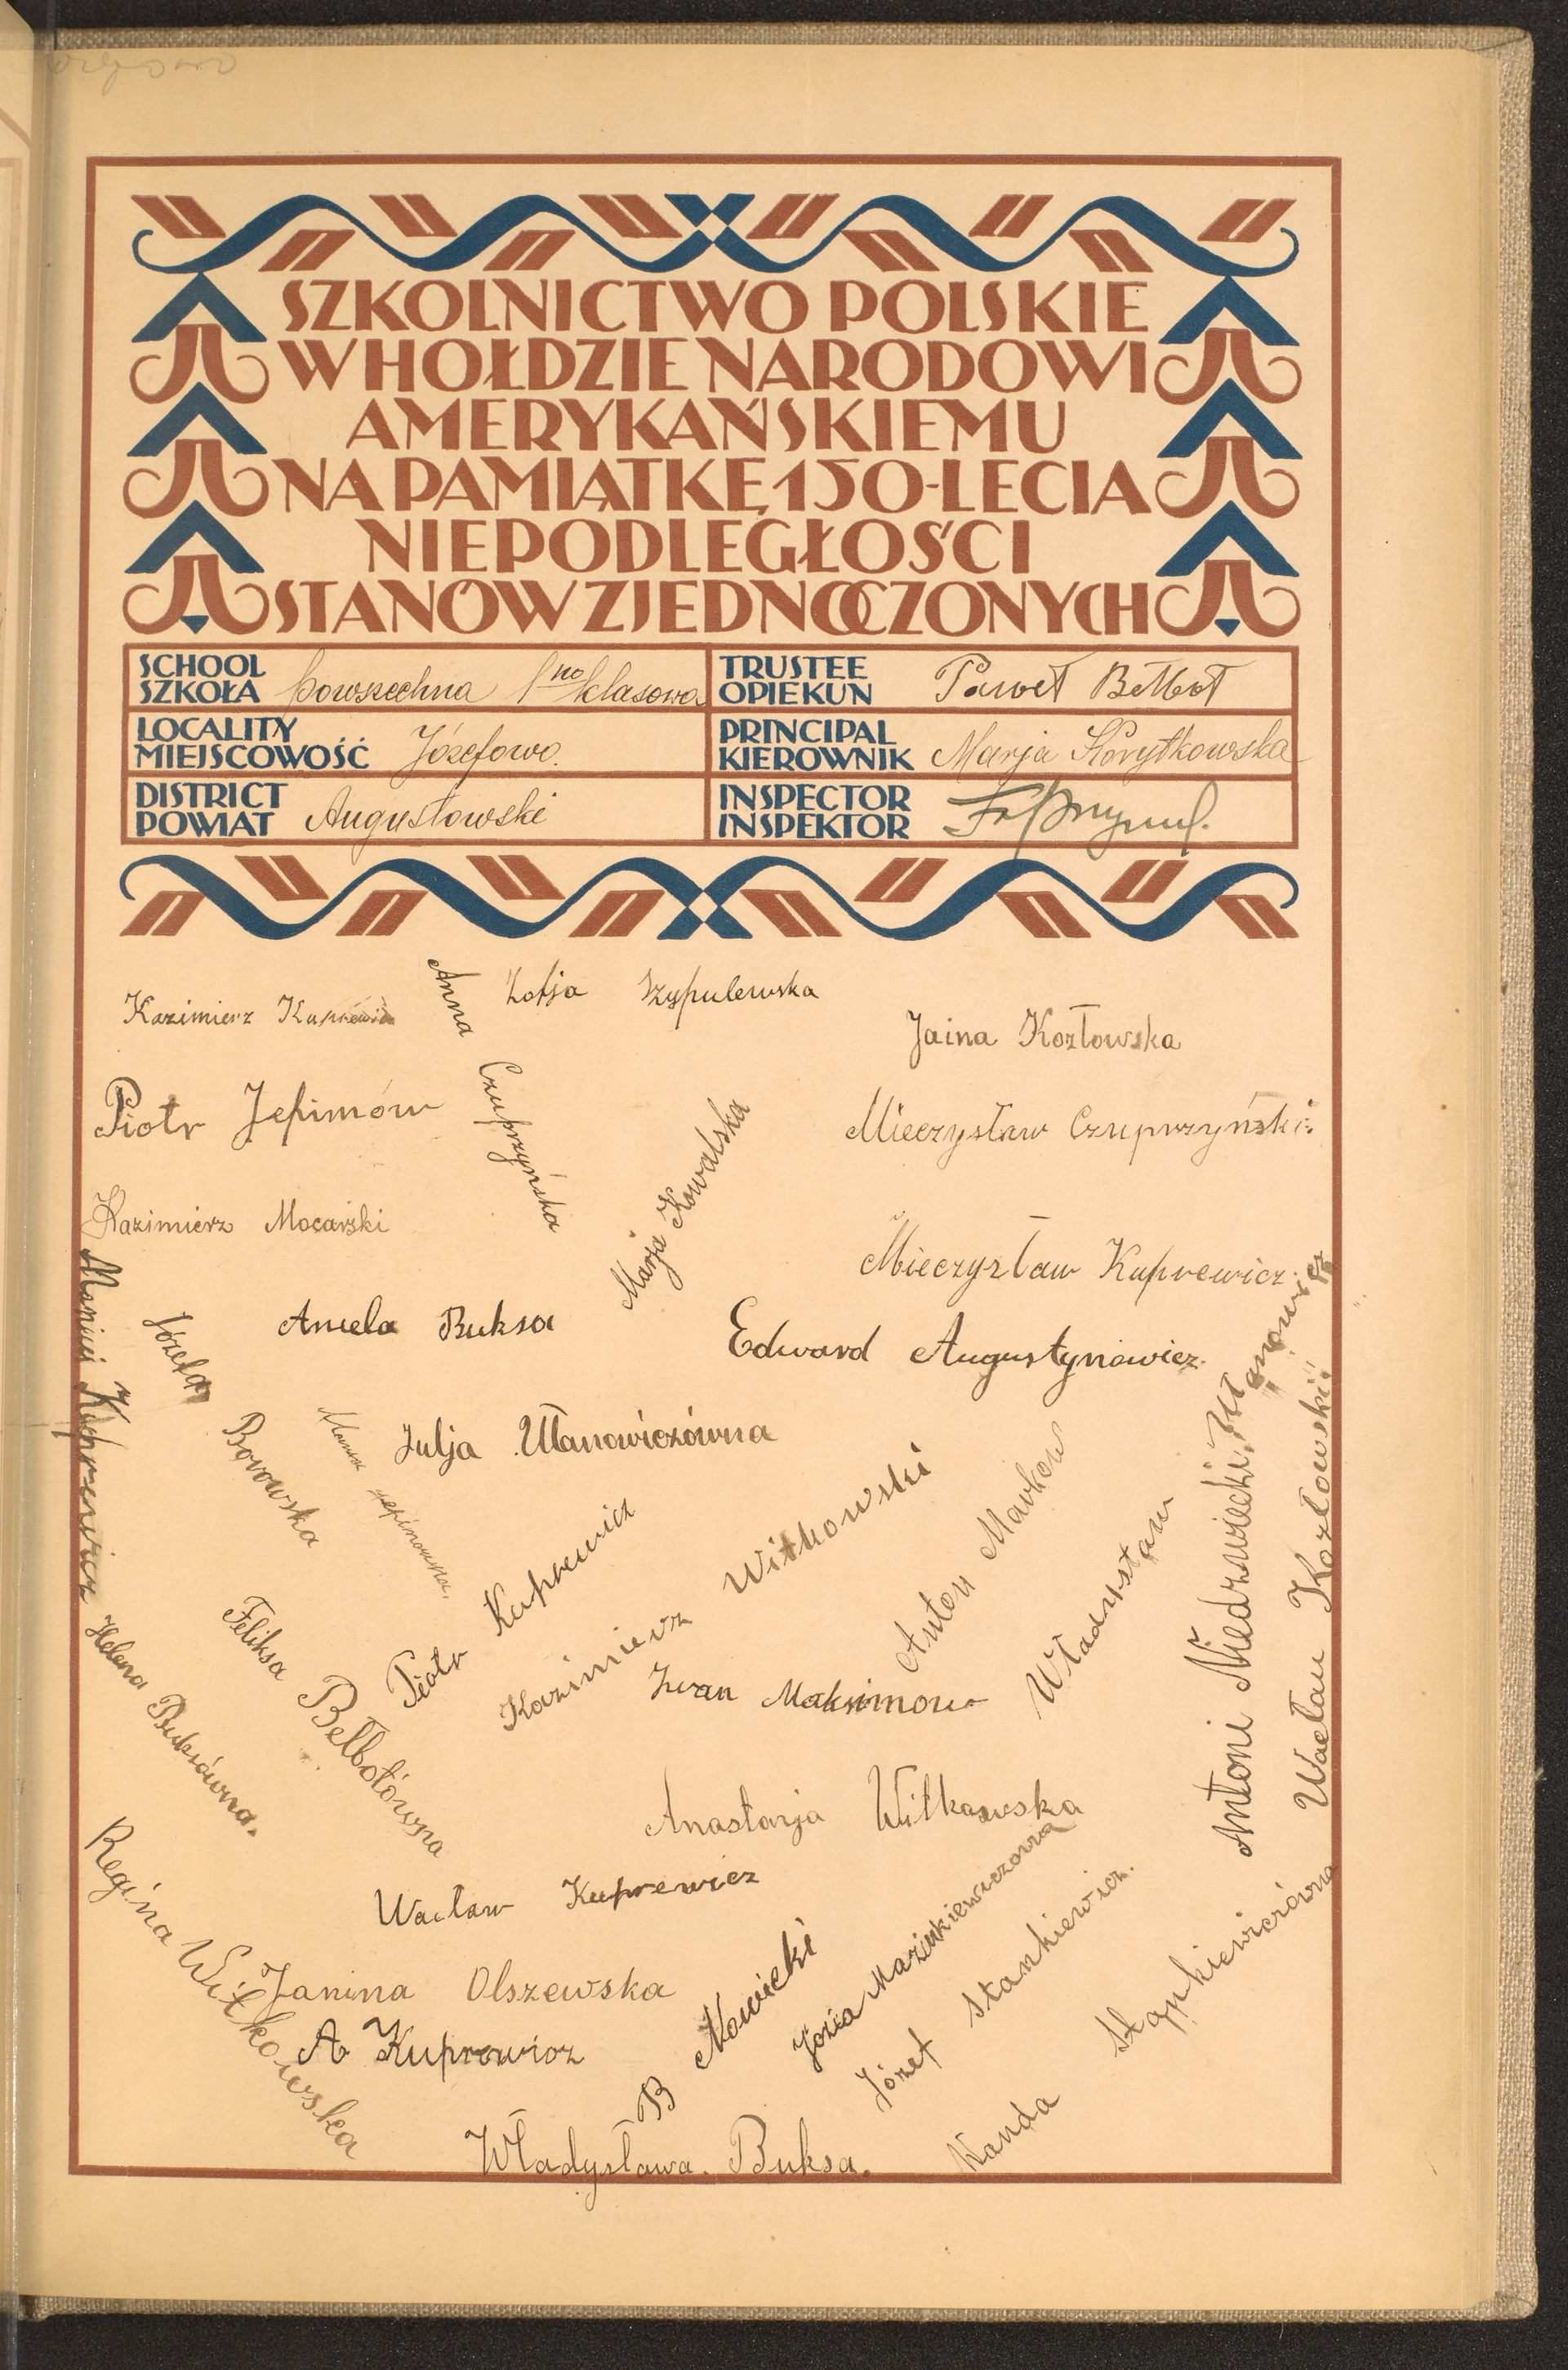 SZKOLNICTWO POLSKIE
W HOŁDZIE NARODOWI
AMERYKAŃSKIEMU
NA PAMIĄTKĘ 150-LECIA
NIEPODLEGŁOŚCI
STANÓW ZJEDNOCZONYCH
SCHOOL
SZKOŁA powszechna 1no klasowa
TRUSTEE
OPIEKUN Paweł Bełbot
LOCALITY
MIEJSCOWOŚĆ Józefowo.
PRINCIPAL
KIEROWNIK Marja Korytkowska
DISTRICT
POWIAT Augustowski
INSPECTOR
INSPEKTOR
Kazimierz Kuprewicz
Anna Czuprzyńska
Zofja Szypulewska
Jaina Kozłowska
Piotr Jefimów
Mieczysław Czuprzyński
Marja Kowalska
Kazimierz Mocarski
Mieczysław Kuprewicz
Kuprewicz
Józefa Borowska
Aniela Buksa
Edward Augustynowicz
Julja Ułanowiczówna
Piotr Kuprewicz
Kazimierz Witkowski
Anton Markow
Władysław Ułanowicz
Antoni Niedzwiecki
Wacłau Kozłowski
Helena Buksówna.
Feliksa Bełbotówna
Iwan Maksimow
Anastazja Witkowska
Wacław Kuprewicz
Regina Witkowska
Janina Olszewska
A Kuprewicz
B Nowicki
Józia Mazinkiewiczówna
Józef Stankiewicz.
Wanda Stankiewiczówna
Władysława. Buksa.